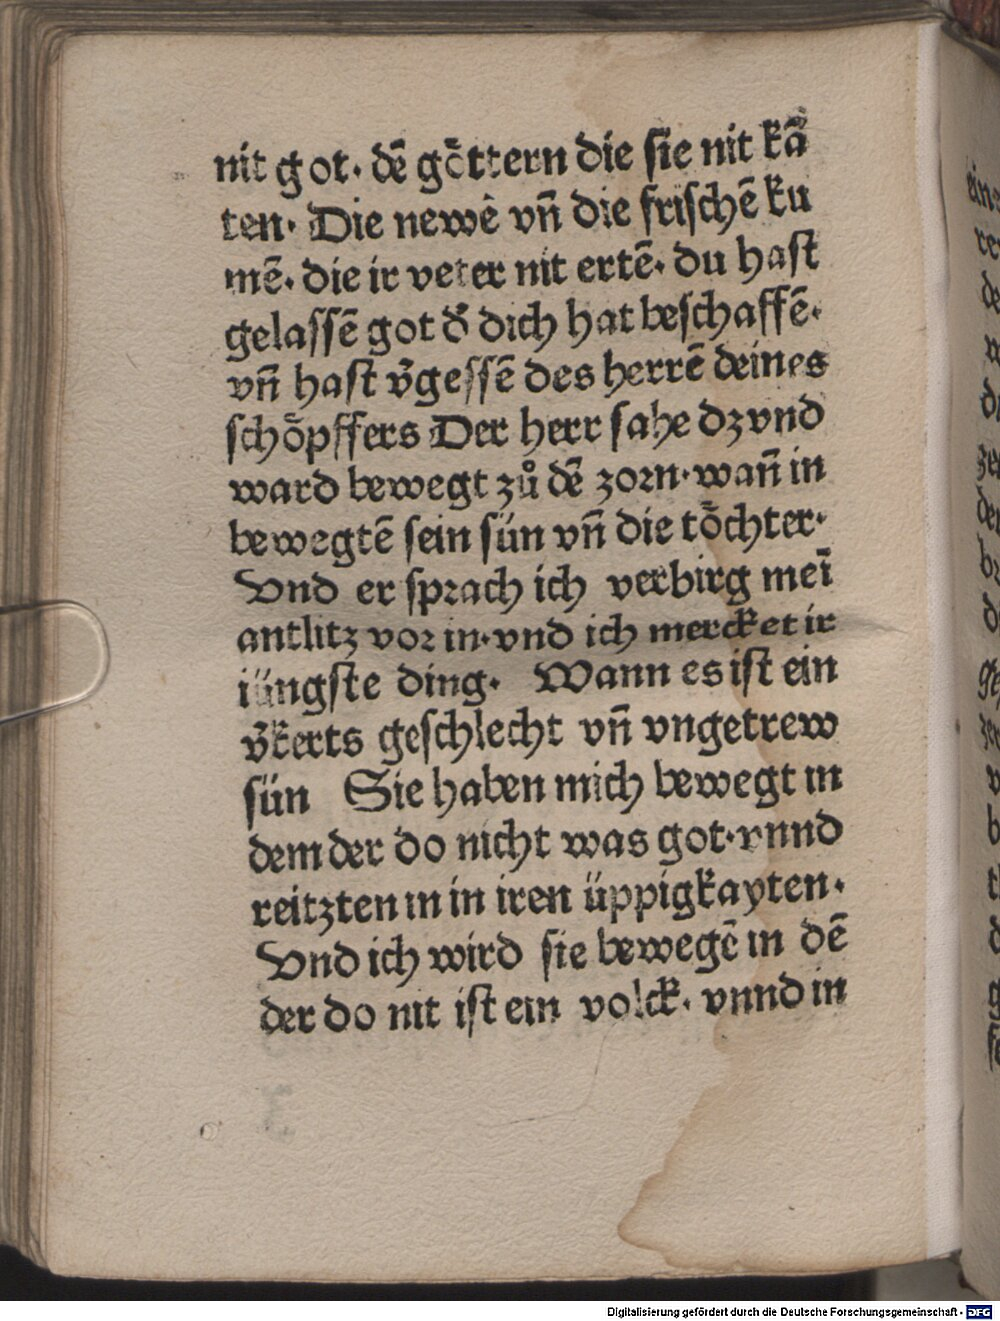 nit got. dē göttern die sie nit kā
ten. Die newē vn̄ die frischē ku
mē. die ir veter nit ertē. du hast
gelassē got d̓ dich hat beschaffē.
vn̄ hast v̓gessē des herrē deines
schöpffers Der herr sahe dz vnd
ward bewegt zů dē zorn. wan̄ in
bewegtē sein sün vn̄ die töchter.
Vnd er sprach ich verbirg meī
antlitz vor in. vnd ich mercket ir
iüngste ding. Wann es ist ein
v̓kerts geschlecht vn̄ vngetrew
sün Sie haben mich bewegt in
dem der do nicht was got. vnnd
reitzten in in iren üppigkayten.
Vnd ich wird sie bewegē in dē
der do nit ist ein volck. vnnd in
Digitalisierung gefördert durch die Deutsche Forschungsgemeinschaft - DFG